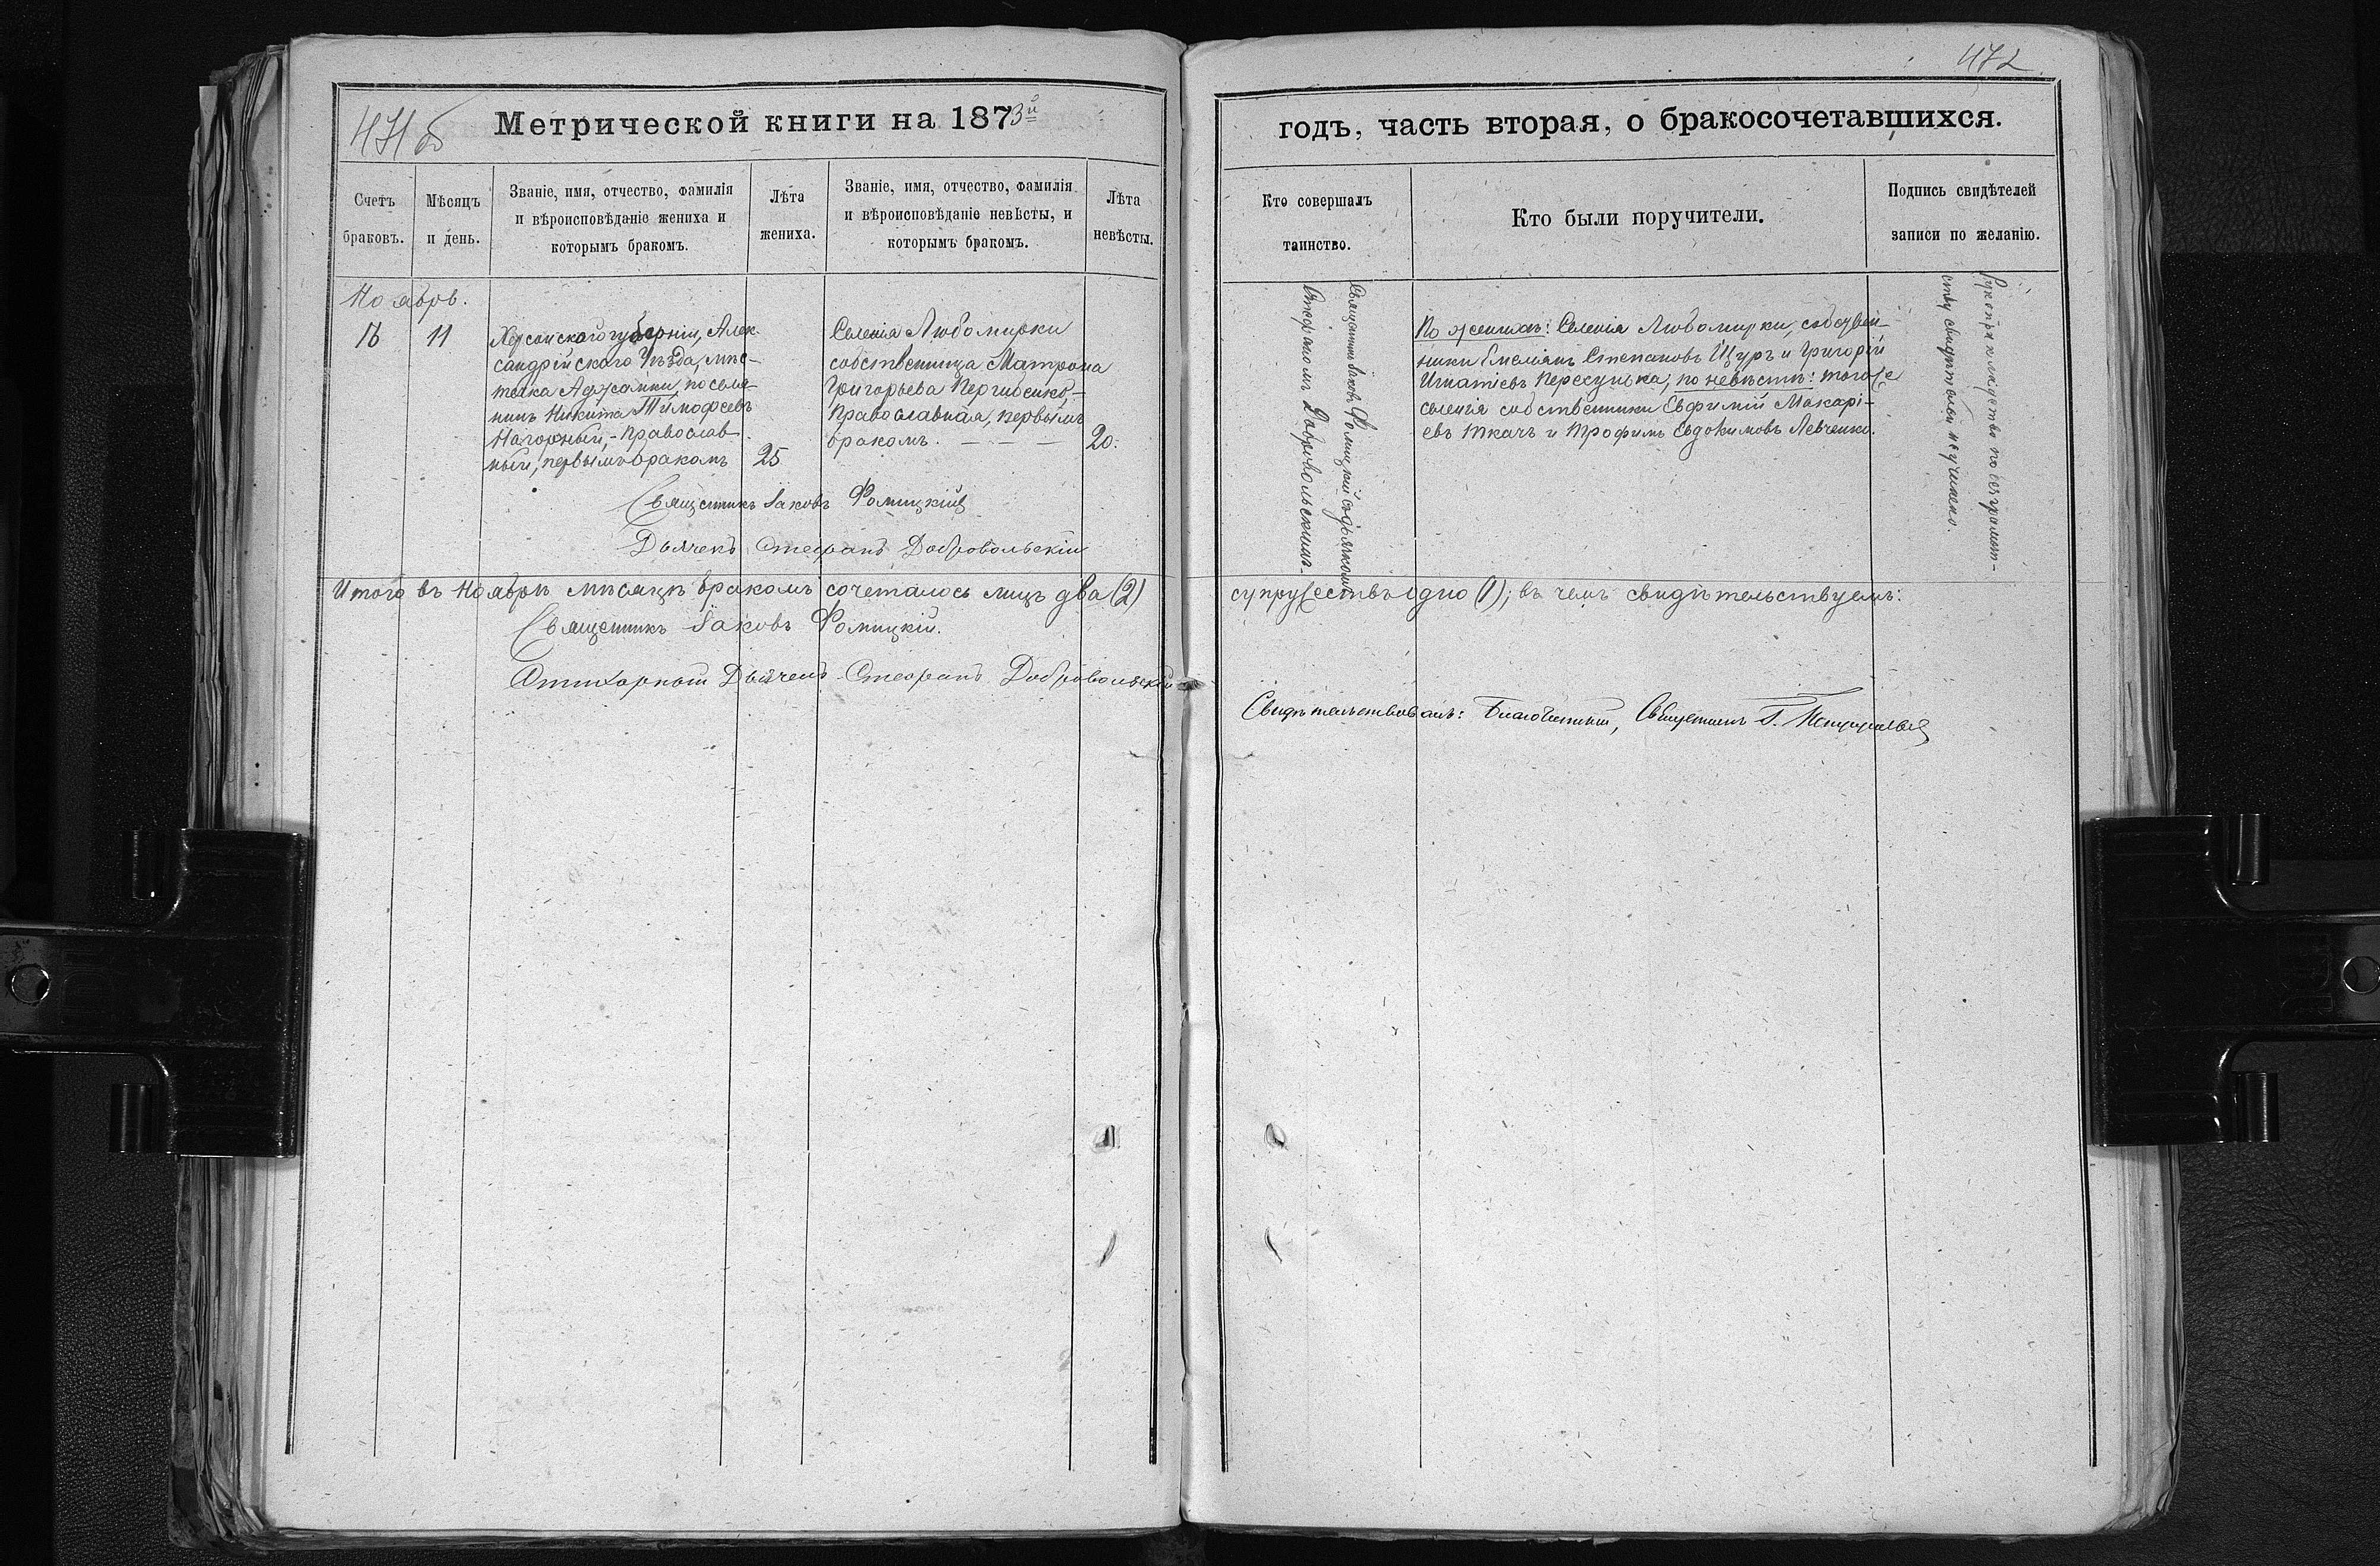 471 б
Метрической книги на 1873й
Счетъ браковъ.
Мѣсяцъ и день.
Званіе, имя, отчество, фамилія
и вѣроисповѣданіе жениха и
которымъ бракомъ.
Лѣта жениха.
Званіе, имя, отчество, фамилія
и вѣроисповѣданіе невѣсты, и
которымъ бракомъ.
Лѣта невѣсты.
Ноябрь.
11
Херсонской губерніи, Алек-
сандрійского Уѣзда, мѣс-
течка Аджамки, поселя-
нинъ Никита Тимофеевъ
Нагорный,- православ-
ный, первымъ бракомъ
25
Селенія Любомирки
собственница Матрона
Григорьева
Православная, первымъ
бракомъ. — — —
20.
Священникъ Іаковъ Фомицкій
Дьячекъ Стефанъ Добровольскій
Итого въ Ноябрѣ мѣсяцѣ бракомъ сочеталось лицъ два (2)
Священникъ Іаковъ Фомицкій.
Дьячекъ Стефанъ Добровольскій
472
годъ, часть вторая, о бракосочетавшихся.
Кто совершалъ
таинство.
Кто были поручители.
Подпись свидѣтелей
записи по желанію.
Священникъ Іаковъ Фомицкій съ дьячкомъ
Стефаномъ Добровольскимъ.
По женихѣ: Селенія Любомирки, собствен-
ники Емеліанъ Степановъ Щуръ и Григорій
Игнатіевъ Пересунька; по невѣстѣ: тогоже
селенія собственники Евфимій Макарі-
евъ Ткачъ и Трофимъ Евдокимовъ Левченко.
Рукоприкладство по безграмот-
ству свидѣтелей не учинено.
супружествъ одно (1); въ чемъ свидѣтельствуемъ:
Свидѣтельствовалъ: Благочинный, Священникъ